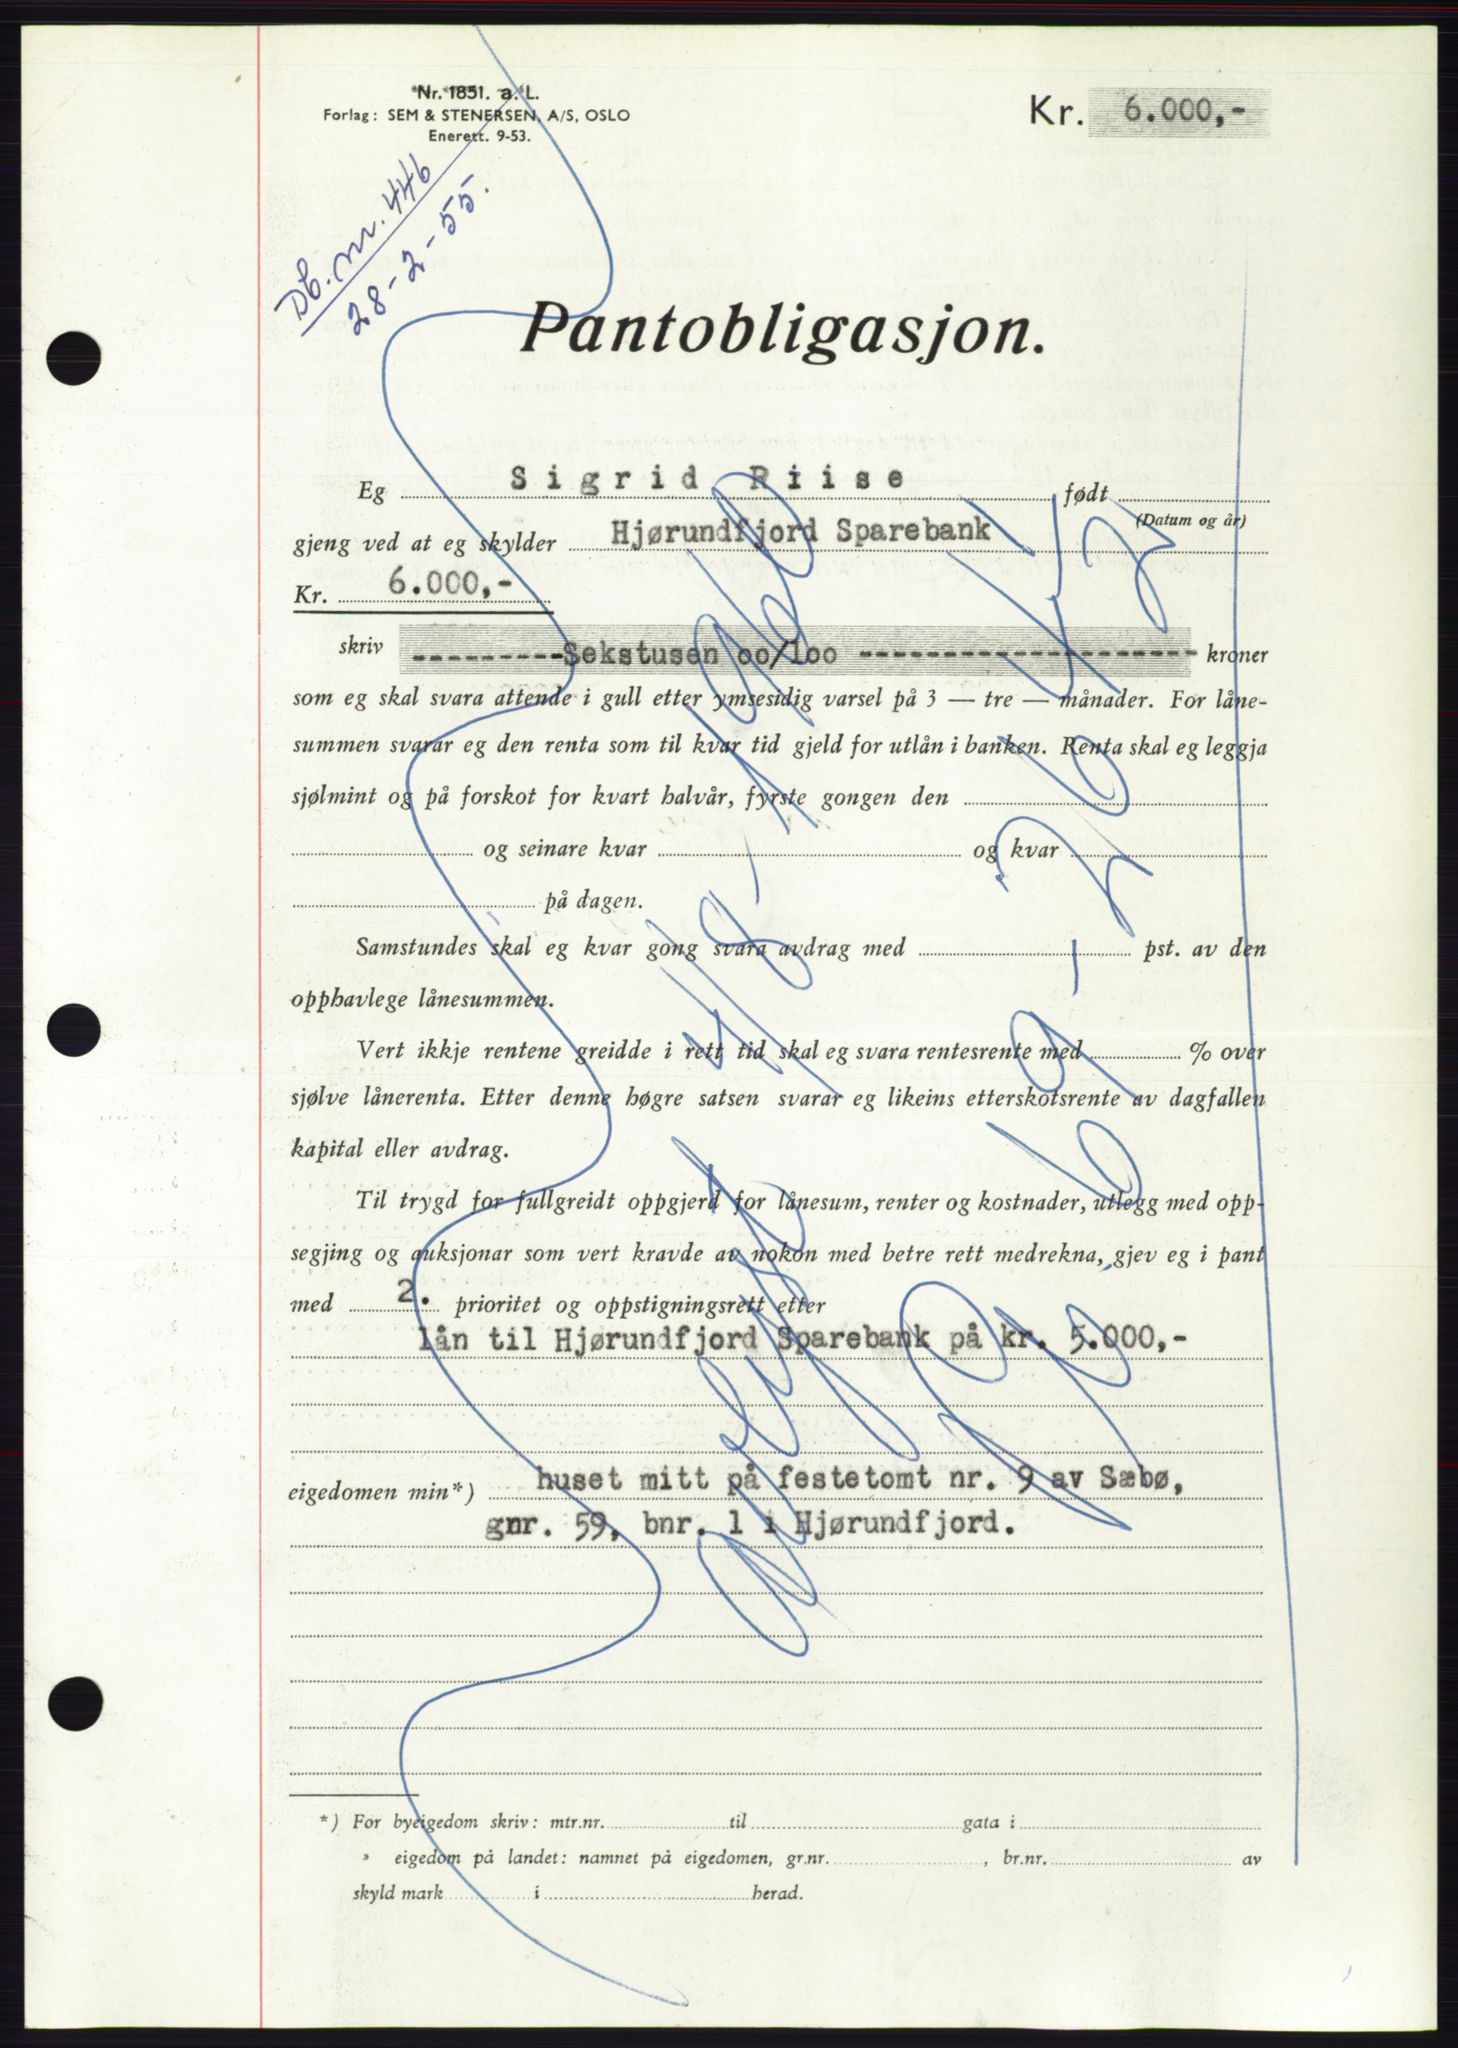 Nr. 1851. a. L.
Forlag: SEM & STENERSEN, A/S, OSLO
Enerett. 9-53.
Kr. 6.000,-
Db. nr. 446
28-2-55.
Pantobligasjon.
Eg Sigrid Riise født
(Datum og år)
gjeng ved at eg skylder Hjørundfjord Sparebank
Kr. 6.000,-
skriv ---------Sekstusen oo/1oo -------------------- kroner
som eg skal svara attende i gull etter ymsesidig varsel på 3 — tre — månader. For låne-
summen svarar eg den renta som til kvar tid gjeld for utlån i banken. Renta skal eg leggja
sjølmint og på forskot for kvart halvår, fyrste gongen den
og seinare kvar og kvar
på dagen.
Samstundes skal eg kvar gong svara avdrag med pst. av den
opphavlege lånesummen.
Vert ikkje rentene greidde i rett tid skal eg svara rentesrente med % over
sjølve lånerenta. Etter denne høgre satsen svarar eg likeins etterskotsrente av dagfallen
kapital eller avdrag.
Til trygd for fullgreidt oppgjerd for lånesum, renter og kostnader, utlegg med opp-
segjing og auksjonar som vert kravde av nokon med betre rett medrekna, gjev eg i pant
med 2. prioritet og oppstigningsrett etter
lån til Hjørundfjord Sparebank på kr. 5.000,-
eigedomen min*) huset mitt på festetomt nr. 9 av Sæbø,
gnr. 59, bnr. 1 i Hjørundfjord.
*) For byeigedom skriv: mtr.nr. til gata i
» eigedom på landet: namnet på eigedomen, gr.nr. , br.nr. av
skyld mark i herad.